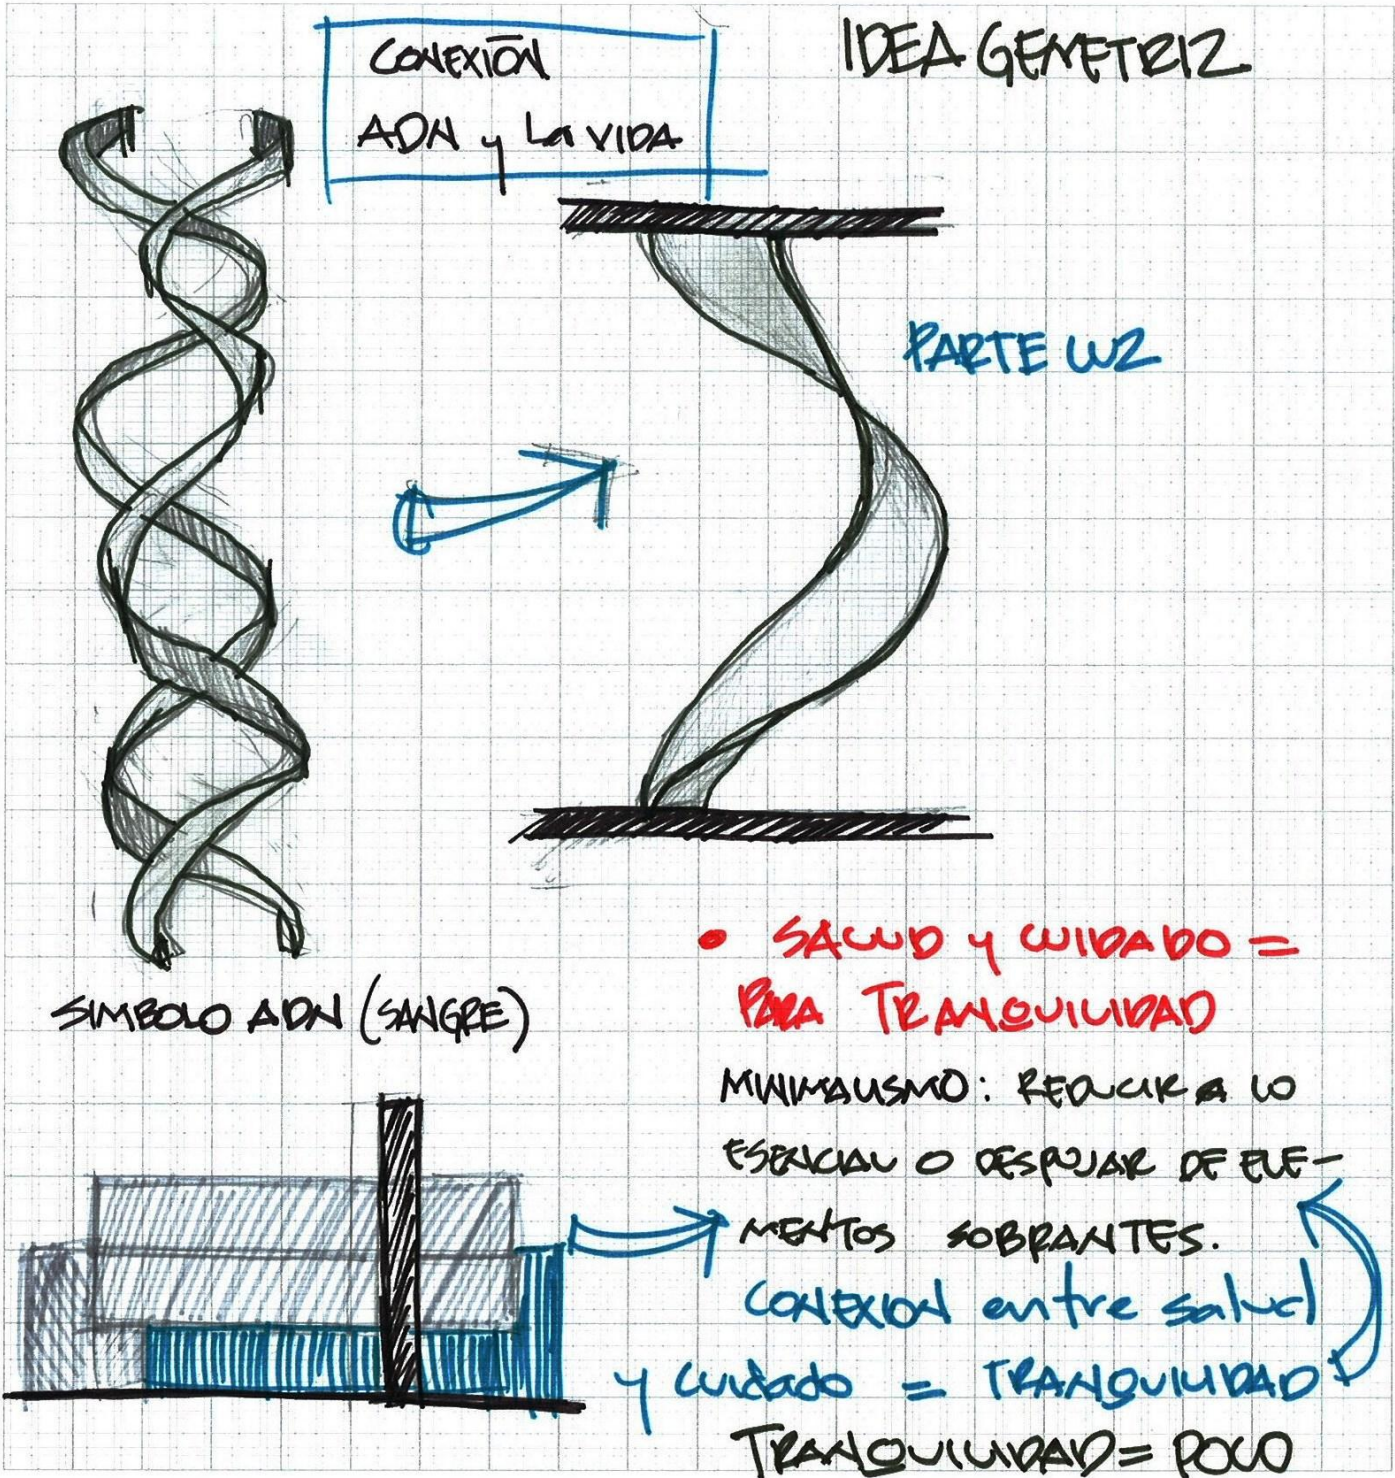 IDEA GENETRIZ
CONEXIÓN
ADN y La VIDA
PARTE LUZ
SIMBOLO ADN (SANGRE)
• SALUD y CUIDADO =
PARA TRANQUILIDAD
MINIMALISMO: REDUCIR A LO
ESENCIAL O DESPOJAR DE ELE-
MENTOS SOBRANTES.
CONEXION entre salud
y cuidado = TRANQUILIDAD
TRANQUILIDAD = POCO